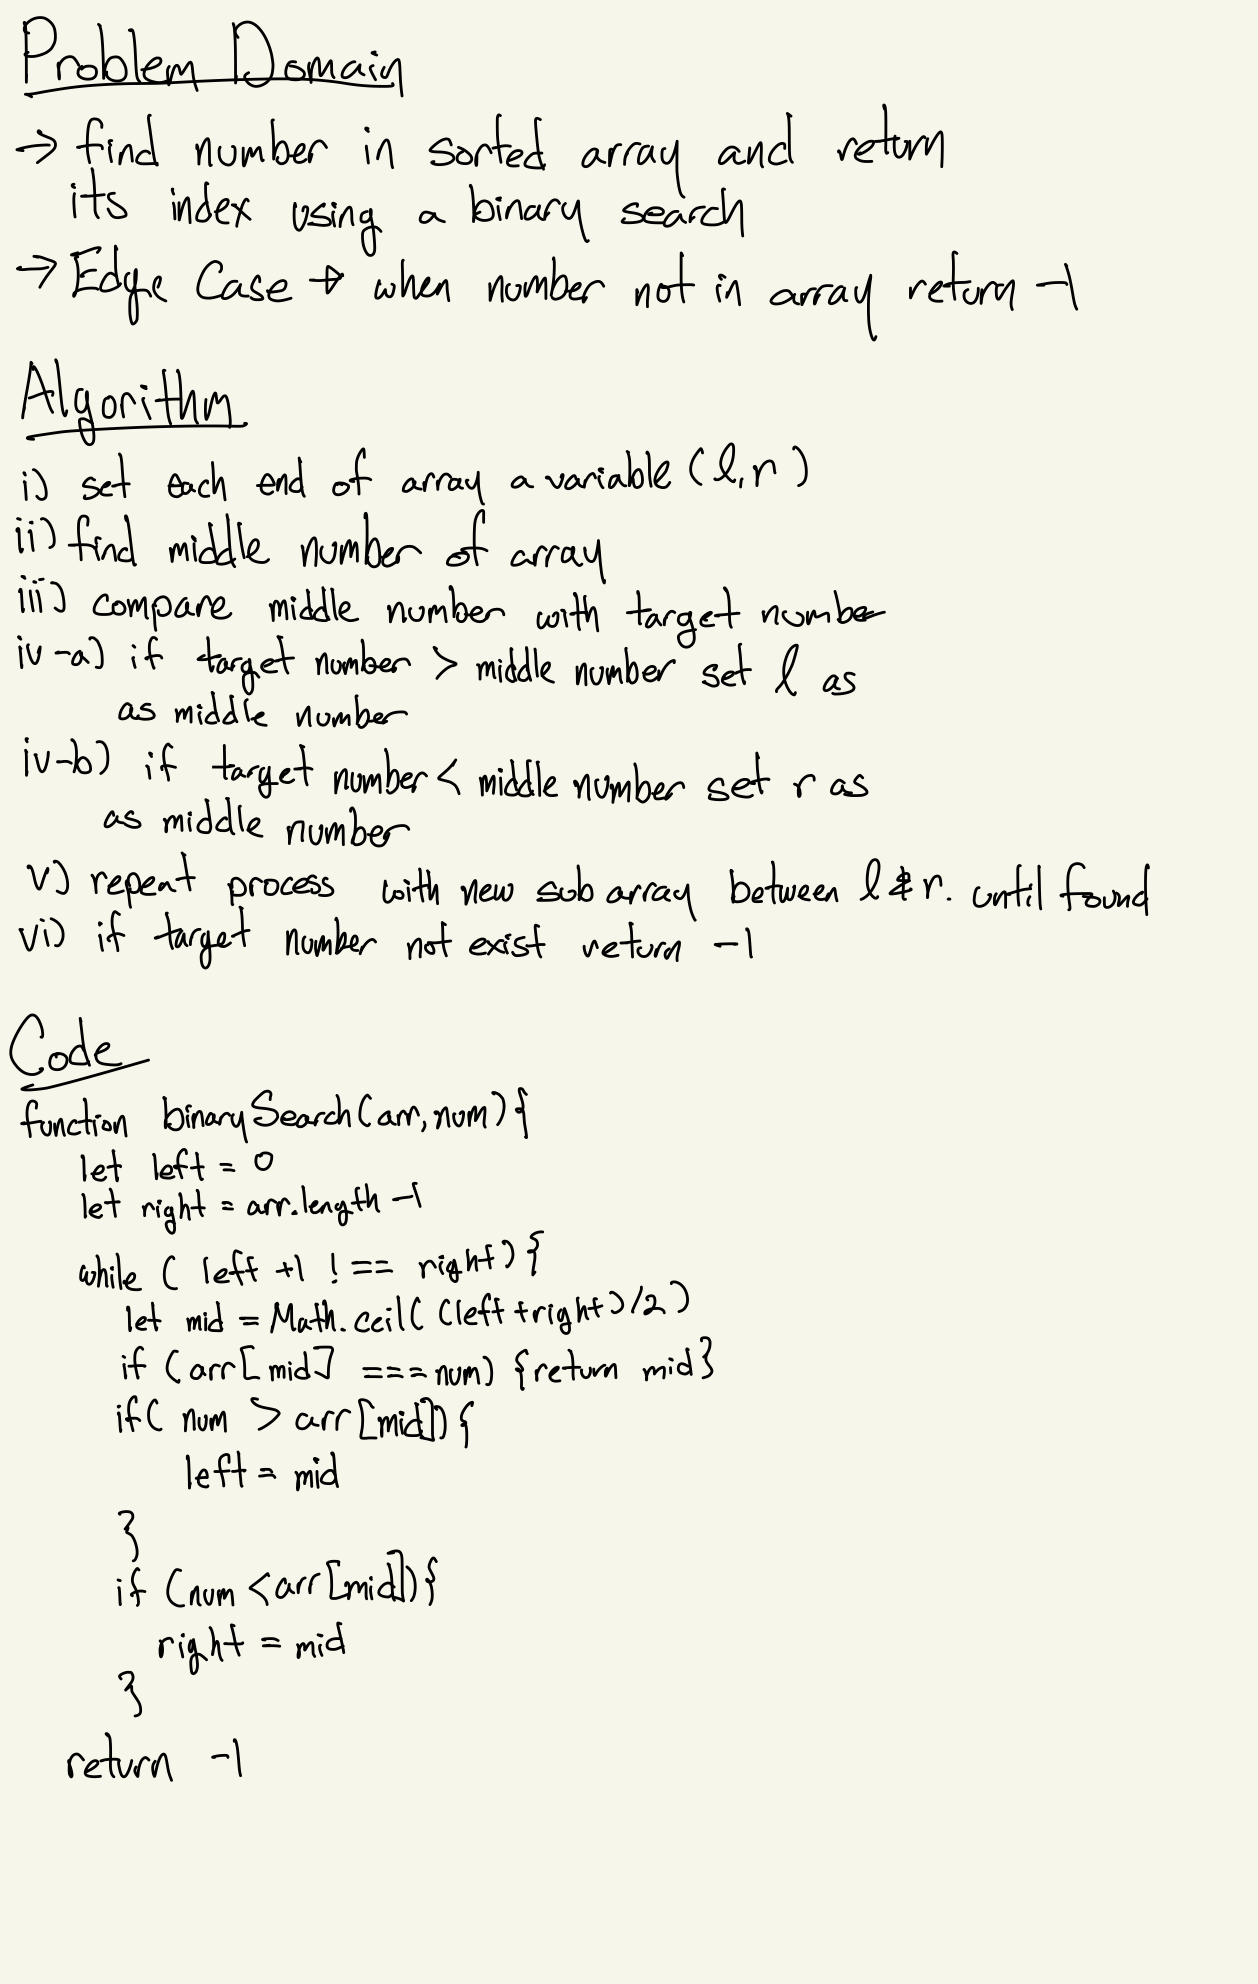 Problem Domain
→ find number in sorted array and return
its index using a binary search
→ Edge Case → when number not in array return -1
Algorithm
i) set each end of array a variable (l,r)
ii) find middle number of array
iii) compare middle number with target number
iv-a) if target number > middle number set l as
as middle number
iv-b) if target number < middle number set r as
as middle number
v) repeat process with new sub array between l & r. until found
vi) if target number not exist return -1
Code
function binarySearch(arr, num){
let left = 0
let right = arr.length -1
while ( left +1 !== right) {
let mid = Math.ceil( (left + right)/2)
if (arr[mid] === num) {return mid}
if( num > arr[mid]){
left = mid
}
if (num < arr[mid]){
right = mid
}
return -1